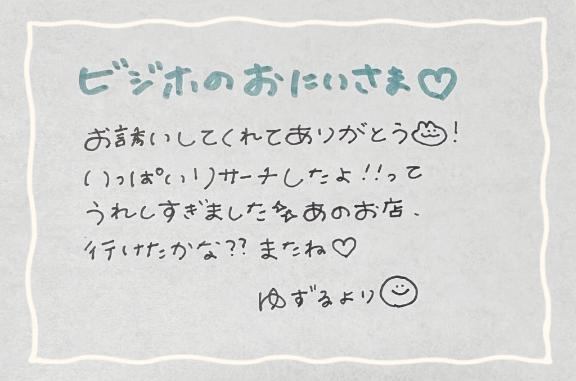 ビジホのおにいさま♡
お誘いしてくれてありがとう!
いっぱいリサーチしたよ!!って
うれしすぎました✨あのお店、
行けたかな??またね♡
ゆずるより☺